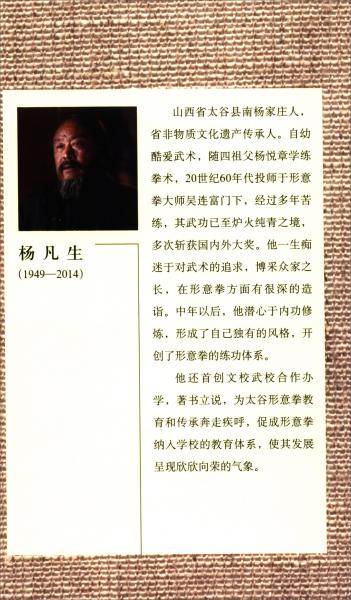 杨凡生
(1949—2014)
山西省太谷县南杨家庄人，
省非物质文化遗产传承人。自幼
酷爱武术，随四祖父杨悦章学练
拳术，20世纪60年代投师于形意
拳大师吴连富门下，经过多年苦
练，其武功已至炉火纯青之境，
多次斩获国内外大奖。他一生痴
迷于对武术的追求，博采众家之
长，在形意拳方面有很深的造
诣。中年以后，他潜心于内功修
炼，形成了自己独有的风格，开
创了形意拳的练功体系。
他还首创文校武校合作办
学，著书立说，为太谷形意拳教
育和传承奔走疾呼，促成形意拳
纳入学校的教育体系，使其发展
呈现欣欣向荣的气象。